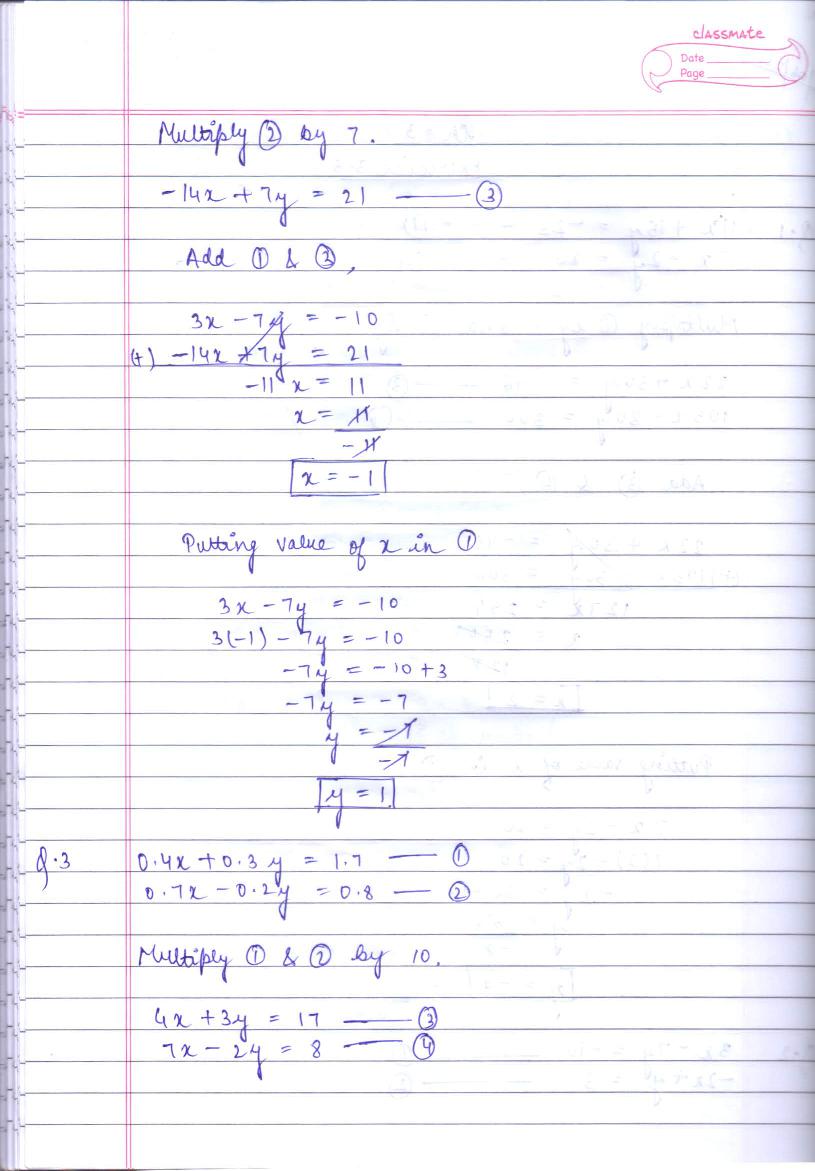 classmate
Date
Page
Multiply ② by 7.
-14x + 7y = 21 —— ③
Add ① & ③,
3x - 7y = -10
(+) -14x + 7y = 21
-11x = 11
x = 11
-11
x = -1
Putting value of x in ①
3x - 7y = -10
3(-1) - 7y = -10
-7y = -10 + 3
-7y = -7
y = -7
-7
y = 1
Q.3 0.4x + 0.3y = 1.7 —— ①
0.7x - 0.2y = 0.8 —— ②
Multiply ① & ② by 10.
4x + 3y = 17 —— ③
7x - 2y = 8 —— ④